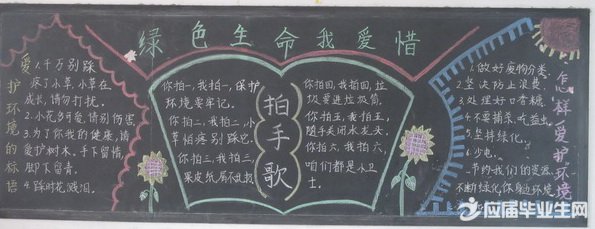 绿色生命我爱惜
爱护环境的标语
1.千万别踩
疼了小草,小草在
成长,请勿打扰。
2.小花多可爱,请别伤害
3.为了你我的健康,请
爱护树木。手下留情,
脚下留青。
4.踩时花溅泪。
你拍一,我拍一,保护
环境要牢记。
你拍二,我拍二,小
草怕疼别踩它。
你拍三,我拍三,
果皮纸屑不乱扔
拍手歌
你拍四,我拍四,垃
圾要进垃圾筒。
你拍五,我拍五,
随手关闭水龙头
你拍六,我拍六,
咱们都是小卫
士。
怎样爱护环境
1.做好废物分类。
2.坚决防止浪费。
3.处理好口香糖。
4.不要捕杀、吃益虫。
5.坚持绿化。
6.少电
节约我们的资源,
不断绿化,你身边环境
应届毕业生网